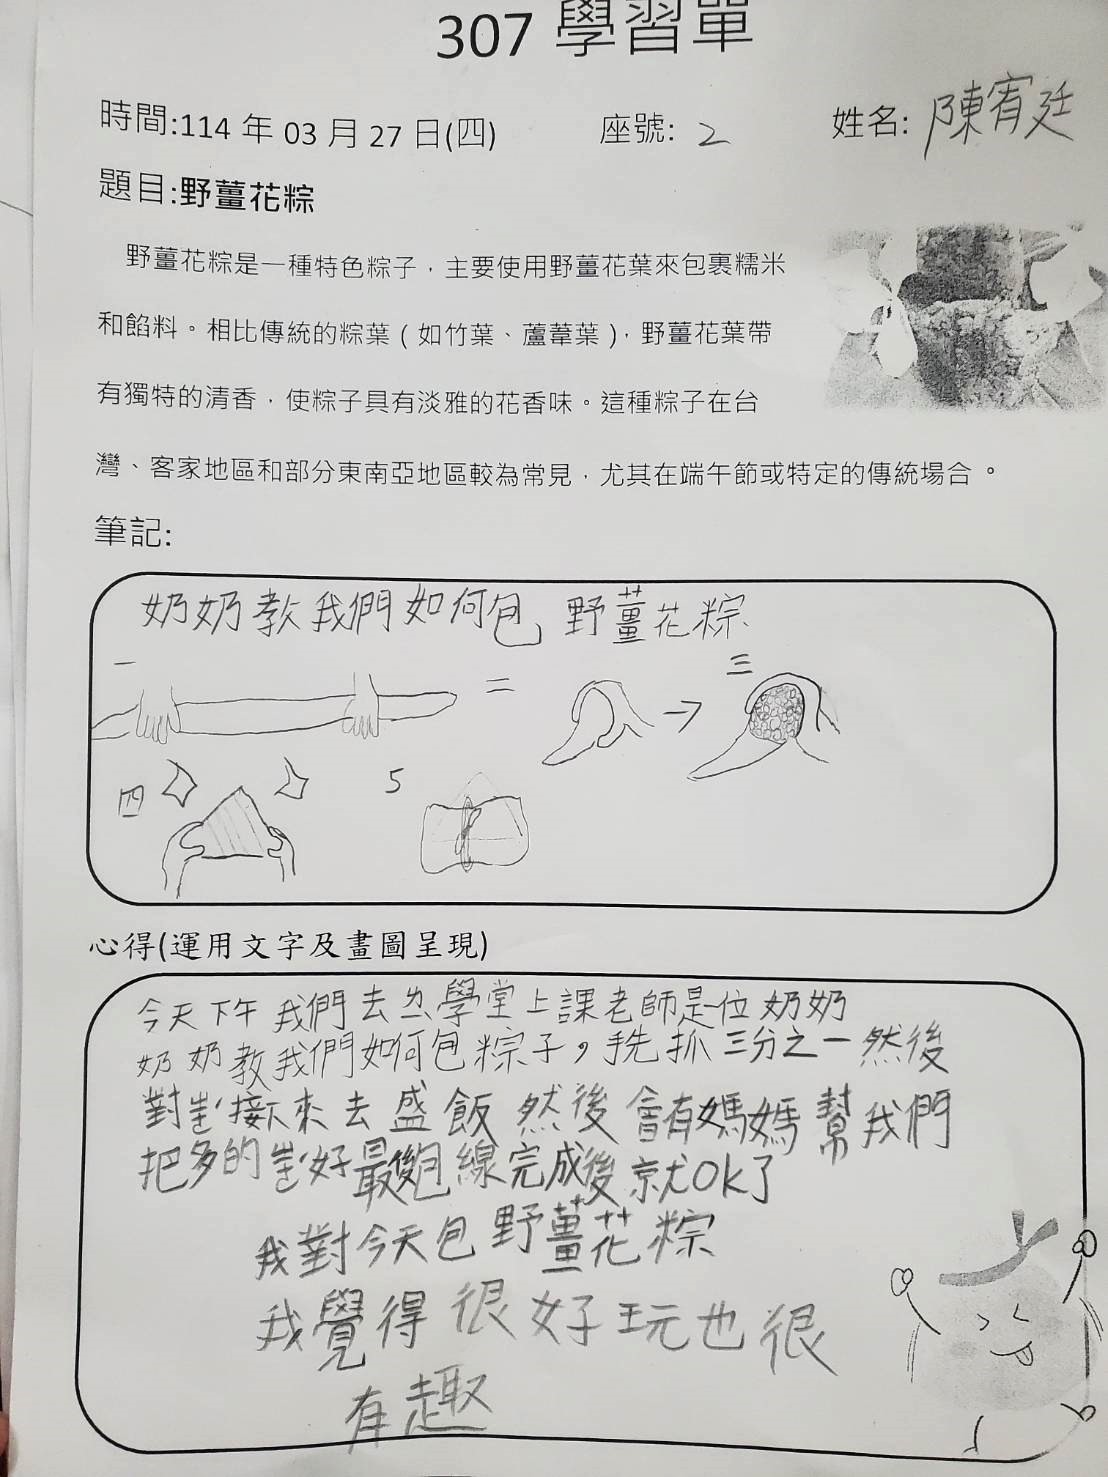 307 學習單
時間:114 年 03 月 27 日(四) 座號: 2 姓名: 陳宥廷
題目:野薑花粽
野薑花粽是一種特色粽子，主要使用野薑花葉來包裹糯米
和餡料。相比傳統的粽葉（如竹葉、蘆葦葉），野薑花葉帶
有獨特的清香，使粽子具有淡雅的花香味。這種粽子在台
灣、客家地區和部分東南亞地區較為常見，尤其在端午節或特定的傳統場合。
筆記:
奶奶教我們如何包野薑花粽
一 二 三
四 5
心得(運用文字及畫圖呈現)
今天下午我們去ㄠ學堂上課老師是一位奶奶
奶奶教我們如何包粽子，先抓三分之一然後
對接下來去盛飯然後會有媽媽幫我們
把多的好最後線完成後就OK了
我對今天包野薑花粽
我覺得很好玩也很
有趣